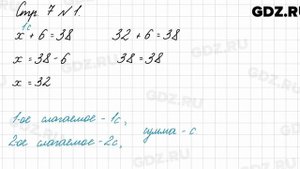 Стр. 7 № 1.
GDZ.RU
1с
x + 6 = 38    32 + 6 = 38
x = 38 - 6    38 = 38
x = 32
1-ое слагаемое - 1с,
сумма - с.
2ое слагаемое - 2с,
GDZ.RU